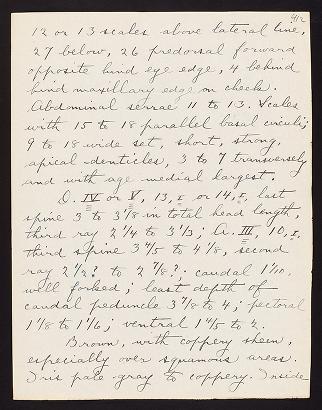 912
12 or 13 scales above lateral line,
27 below, 26 predorsal forward
opposite hind eye edge, 4 behind
hind maxillary edge on cheek.
Abdominal serrae 11 to 13. Scales
with 15 to 18 parallel basal circuli;
9 to 18 wide set, short, strong,
apical denticles, 3 to 7 transversely
and with age medial largest.
D. IV or V, 13, I or 14, I, last
spine 3 to 3 1/8 in total head length,
third ray 2 1/4 to 3 1/3; A. III, 10, I,
third spine 3 4/5 to 4 1/8, second
ray 2 1/2? to 2 7/8?; caudal 1 1/10,
well forked; least depth of
caudal peduncle 3 7/8 to 4; pectoral
1 1/8 to 1 1/6; ventral 1 4/5 to 2.
Brown, with coppery sheen,
especially over squamous areas.
Iris pale gray to coppery. Inside